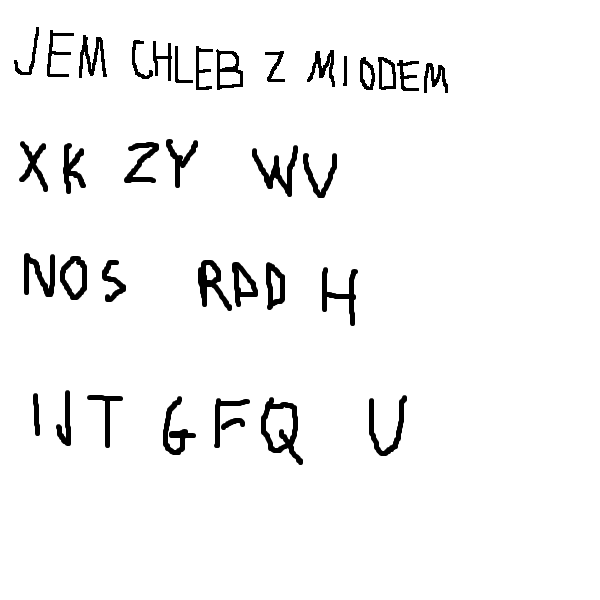 JEM CHLEB Z MIODEM
XK ZY WV
NOS RDD H
IJT GFQ U